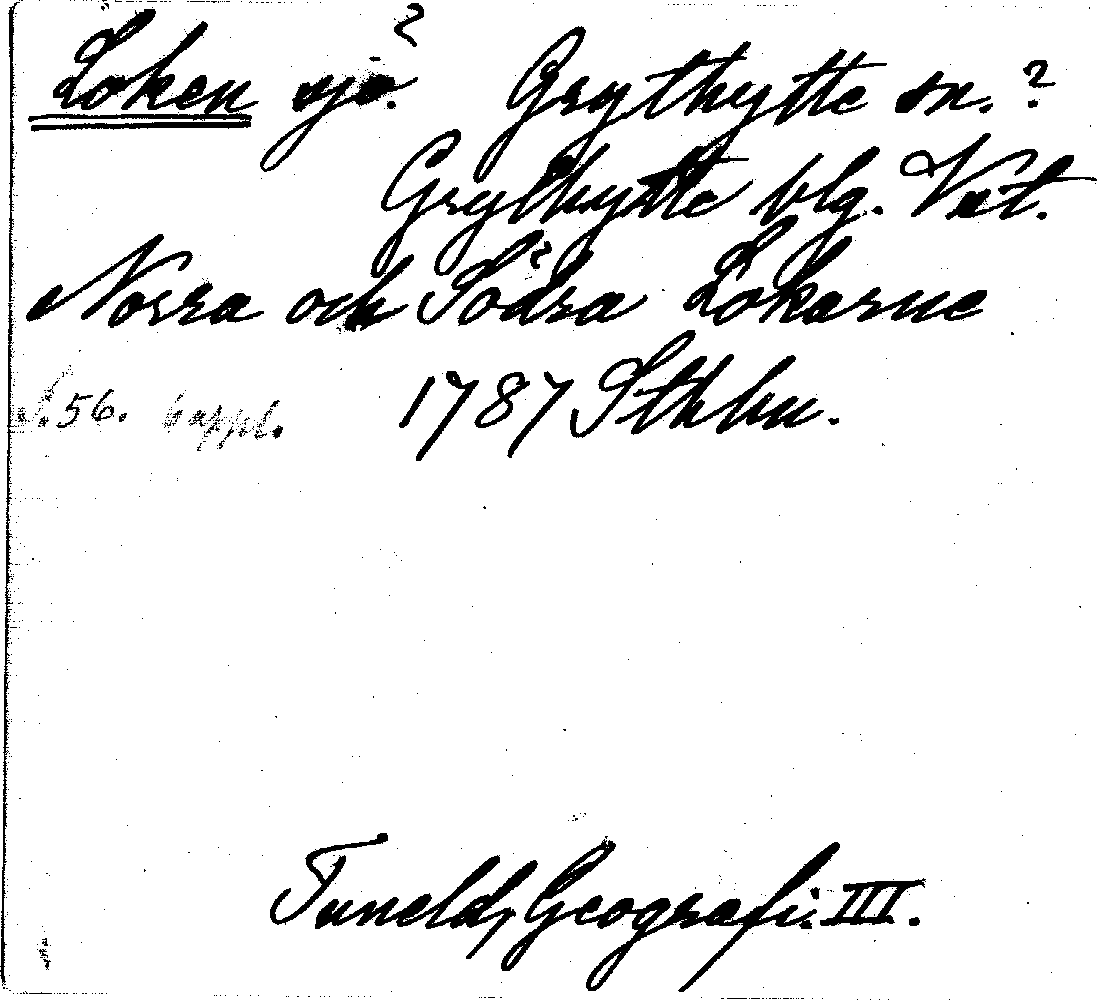 Loken sjö? Grythytte sn.?
Grythytte blg. Vstl.
Norra och Södra Lokarne
s. 56. suppl. 1787 Sthlm.
Tuneld, Geografi. III.